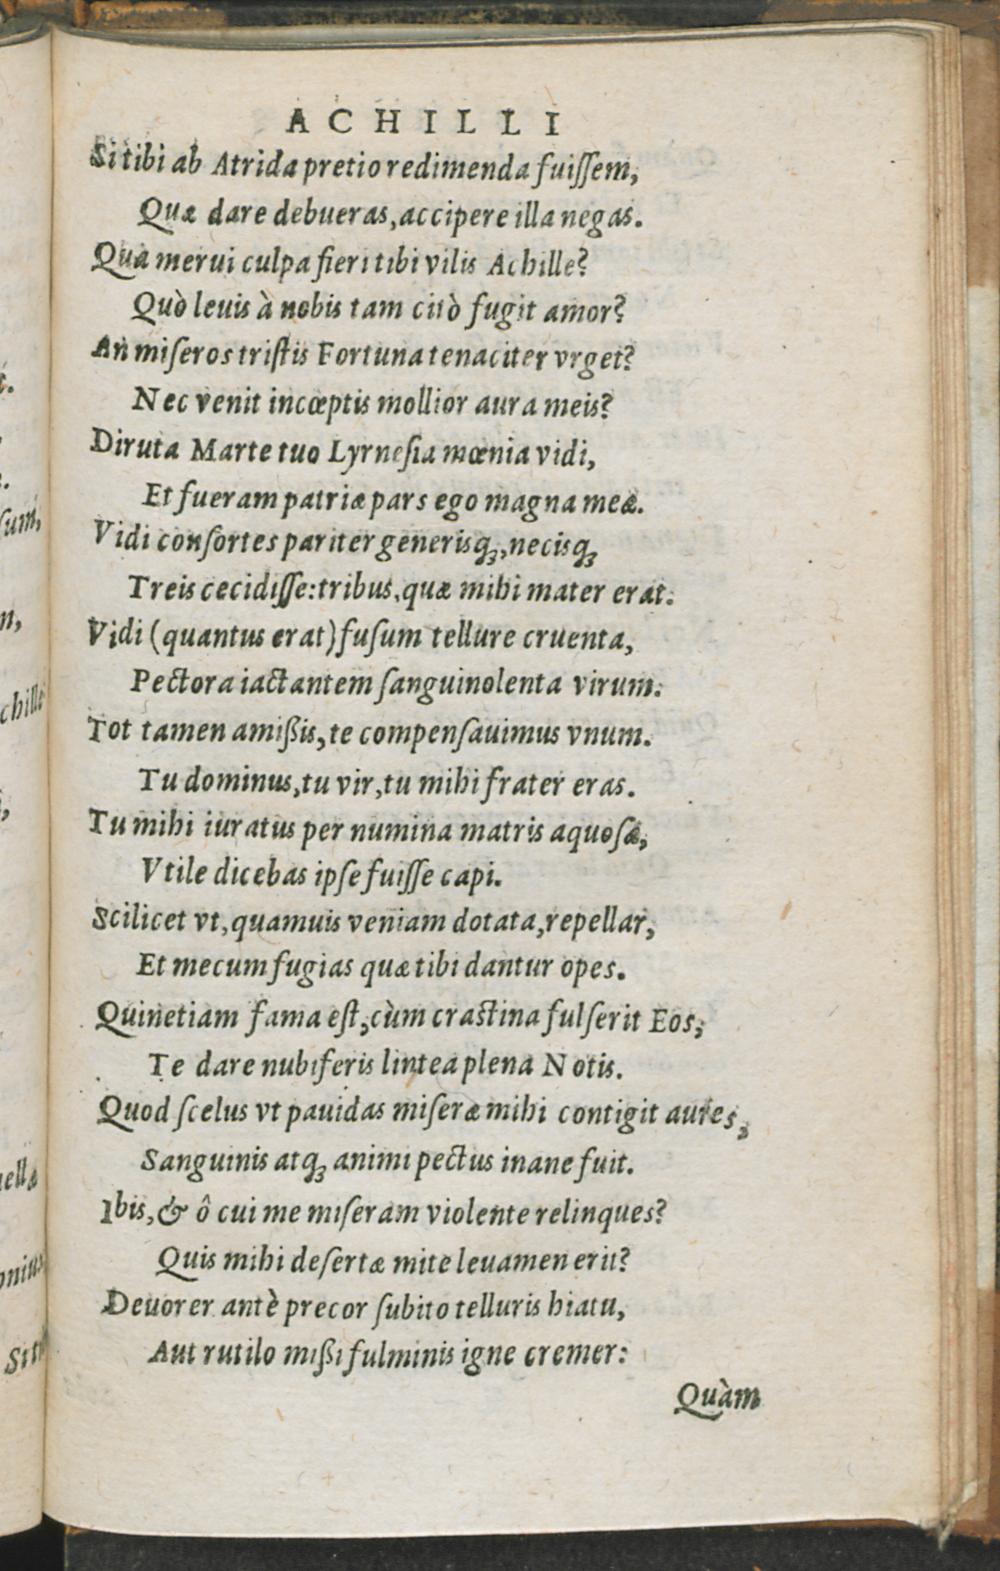 ACHILLI
Si tibi ab Atrida pretio redimenda fuiſſem,
Quæ dare debueras, accipere illa negas.
Qua merui culpa fieri tibi vilis Achille?
Quò leuis à nobis tam citò fugit amor?
An miſeros triſtis Fortuna tenaciter vrget?
Nec venit incœptis mollior aura meis?
Diruta Marte tuo Lyrneſia mœnia vidi,
Et fueram patriæ pars ego magna meæ.
Vidi conſortes pariter generisq́;, necisq́;
Treis cecidiſſe: tribus, quæ mihi mater erat.
Vidi (quantus erat) fuſum tellure cruenta,
Pectora iactantem ſanguinolenta virum.
Tot tamen amißis, te compenſauimus vnum.
Tu dominus, tu vir, tu mihi frater eras.
Tu mihi iuratus per numina matris aquoſæ,
Vtile dicebas ipſe fuiſſe capi.
Scilicet vt, quamuis veniam dotata, repellar,
Et mecum fugias quæ tibi dantur opes.
Quinetiam fama eſt, cùm craſtina fulſerit Eos,
Te dare nubiferis lintea plena Notis.
Quod ſcelus vt pauidas miſeræ mihi contigit aures,
Sanguinis atq; animi pectus inane fuit.
Ibis, & ô cui me miſeram violente relinques?
Quis mihi deſertæ mite leuamen erit?
Deuorer antè precor ſubito telluris hiatu,
Aut rutilo mißi fulminis igne cremer:
Quàm